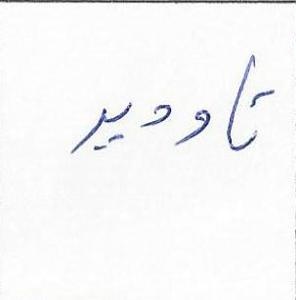 تاودیر